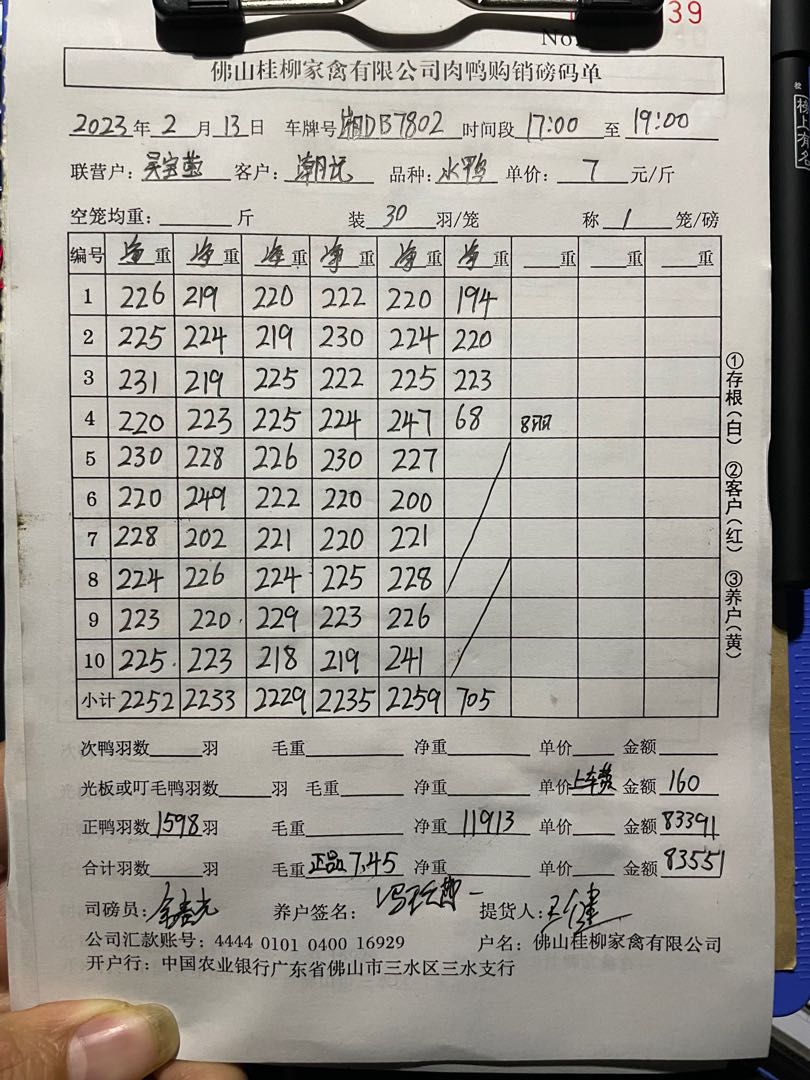 39
No.
佛山桂柳家禽有限公司肉鸭购销磅码单
2023年 2 月 13 日 车牌号 湘DB7802 时间段 17:00 至 19:00
联营户: 吴宝莹 客户: 潮记 品种: 水鸭 单价: 7 元/斤
空笼均重: 斤 装 30 羽/笼 称 1 笼/磅
编号 净重 净重 净重 净重 净重 净重 重 重 重
1 226 219 220 222 220 194
2 225 224 219 230 224 220
3 231 219 225 222 225 223
4 220 223 225 224 247 68 8羽
5 230 228 226 230 227
6 220 249 222 220 200
7 228 202 221 220 221
8 224 226 224 225 228
9 223 220 229 223 226
10 225 223 218 219 241
小计 2252 2233 2229 2235 2259 705
次鸭羽数 羽 毛重 净重 单价 金额
光板或叮毛鸭羽数 羽 毛重 净重 单价 上车费 金额 160
正鸭羽数 1598 羽 毛重 净重 11913 单价 金额 83391
合计羽数 羽 毛重 正品7.45 净重 单价 金额 83551
司磅员: 养户签名: 提货人:
公司汇款账号: 4444 0101 0400 16929 户名: 佛山桂柳家禽有限公司
开户行: 中国农业银行广东省佛山市三水区三水支行
①存根(白) ②客户(红) ③养户(黄)